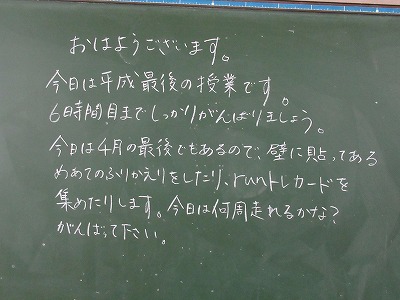 おはようございます。
今日は平成最後の授業です。
6時間目までしっかりがんばりましょう。
今日は4月の最後でもあるので、壁に貼ってある
めあてのふりかえりをしたり、runトレカードを
集めたりします。今日は何周走れるかな?
がんばって下さい。